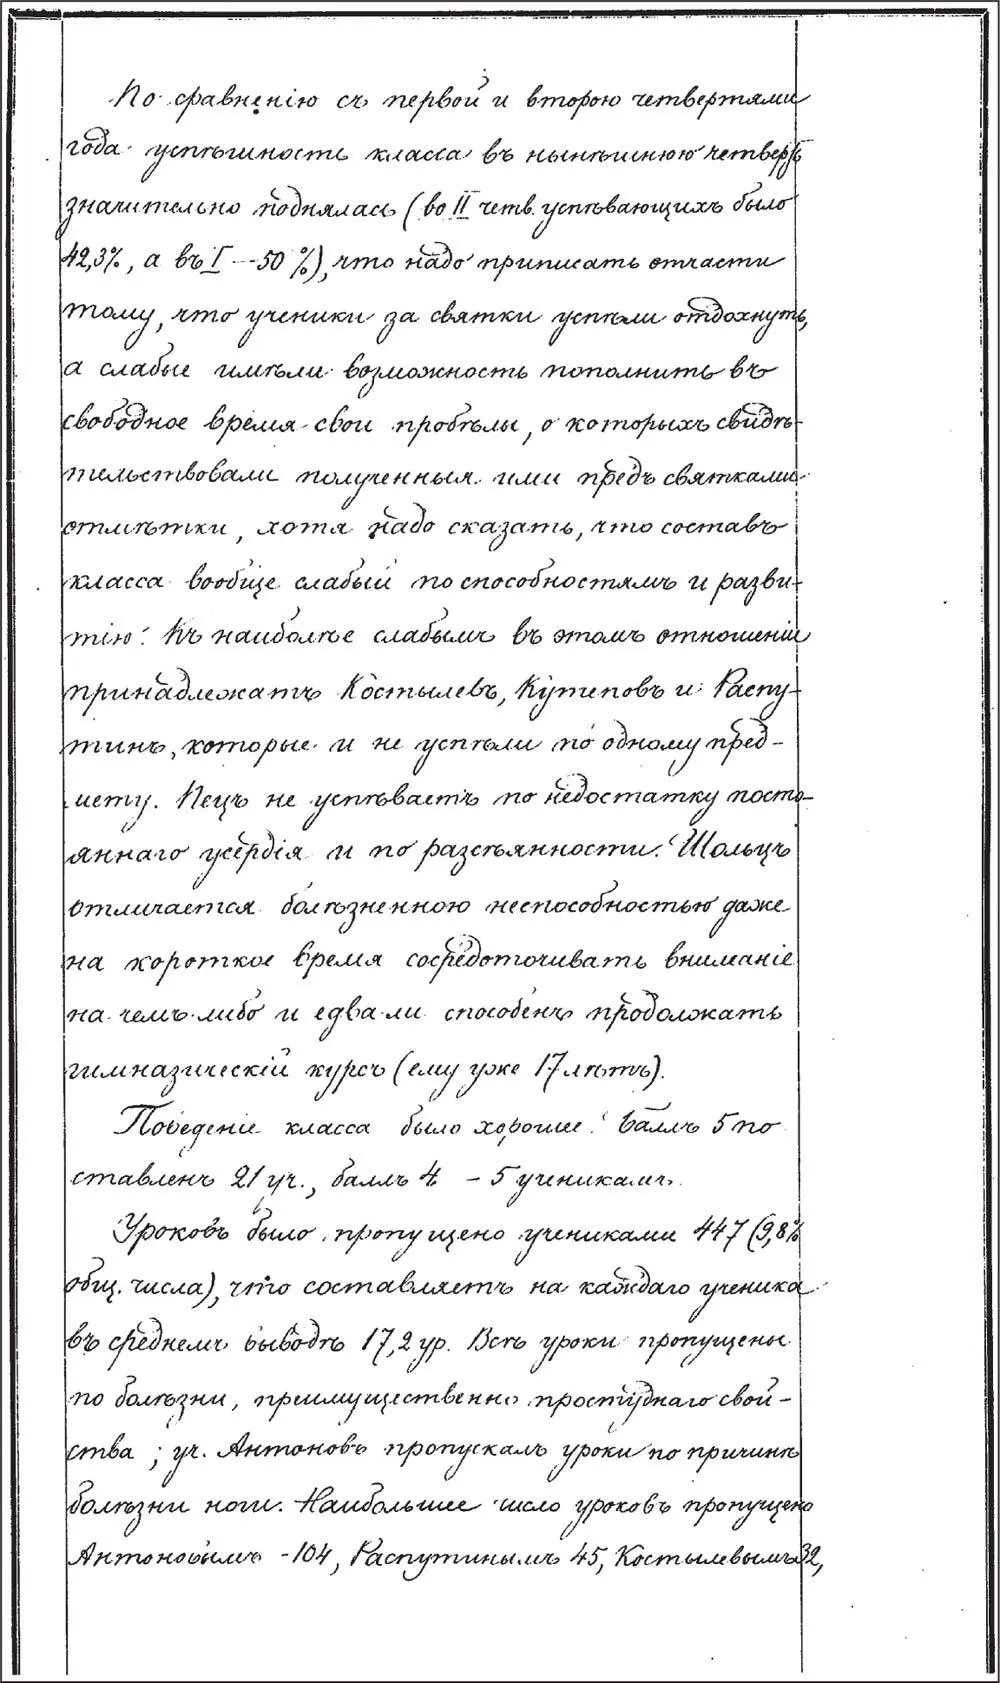 По сравненію съ первой и второю четвертями
года успѣшность класса въ нынѣшнюю четверть
значительно поднялась (во II четв. успѣвающихъ было
42,3%, а въ I — 50 %), что надо приписать отчасти
тому, что ученики за святки успѣли отдохнуть,
а слабые имѣли возможность пополнить въ
свободное время свои пробѣлы, о которыхъ свидѣ-
тельствовали полученныя ими предъ святками
отмѣтки, хотя надо сказать, что составъ
класса вообще слабый по способностямъ и разви-
тію. Къ наиболѣе слабымъ въ этомъ отношеніи
принадлежатъ Костылевъ, Кутеповъ и Распу-
тинъ, которые и не успѣли по одному пред-
мету. Пецъ не успѣваетъ по недостатку посто-
яннаго усердія и по разсѣянности. Шольцъ
отличается болѣзненною неспособностью даже
на короткое время сосредоточивать вниманіе
на чемъ-либо и едва-ли способенъ продолжать
гимназическій курсъ (ему уже 17 лѣтъ).
Поведеніе класса было хорошее. Баллъ 5 по
ставленъ 21 уч., баллъ 4 – 5 ученикамъ.
Уроковъ было пропущено учениками 447 (9,8%
общ. числа), что составляетъ на каждаго ученика
въ среднемъ выводѣ 17,2 ур. Всѣ уроки пропущены
по болѣзни, преимущественно простуднаго свой-
ства; уч. Антоновъ пропускалъ уроки по причинѣ
болѣзни ноги. Наибольшее число уроковъ пропущено
Антоновымъ - 104, Распутинымъ 45, Костылевымъ 32,